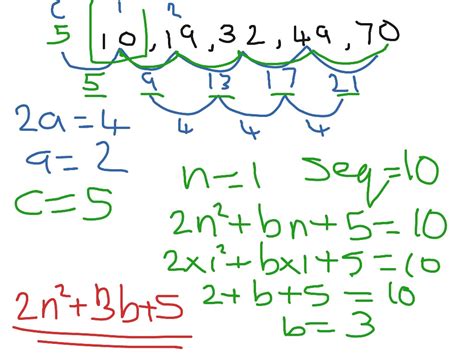 c 1 2
5 10, 19, 32, 49, 70
5 9 13 17 21
4 4 4
2a=4
a=2
c=5
n=1 seq=10
2n²+bn+5=10
2x1²+bx1+5=10
2+b+5=10
b=3
2n²+3b+5